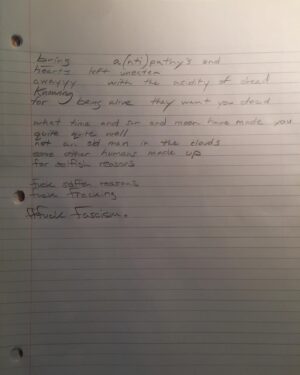 boring a(nti)pathy's and
hearts left uneaten
awayyy with the acidity of dread
Knowing
for being alive they want you dead
what time and sun and moon have made you
quite quite well
not an old man in the clouds
some other humans made up
for selfish reasons
fuck selfish reasons
fuck fracking
fuck fascism.